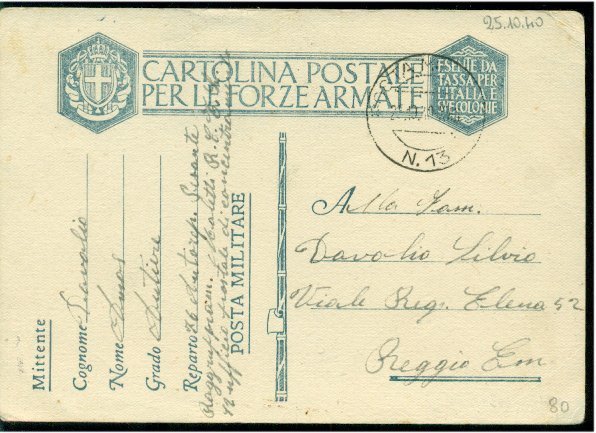 25.10.40
CARTOLINA POSTALE
PER LE FORZE ARMATE
ESENTE DA
TASSA PER
L'ITALIA E
SUE COLONIE
N. 13
Mittente
Cognome Davolio
Nome Amos
Grado Autiere
Reparto
Raggruppam.
ufficio postale di concentramento
POSTA MILITARE
Alla Fam.
Davolio Silvio
Viale Reg. Elena 52
Reggio Em
80